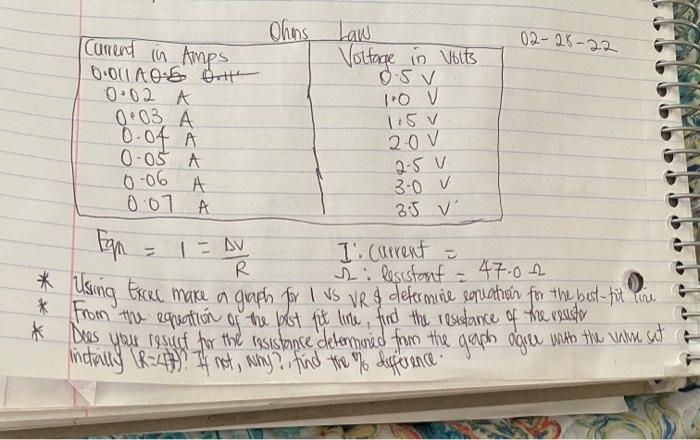 Ohms Law
02-28-22
Current in Amps Voltage in Volts
0.011 A 0.5 V
0.02 A 1.0 V
0.03 A 1.5 V
0.04 A 2.0 V
0.05 A 2.5 V
0.06 A 3.0 V
0.07 A 3.5 V
Eqn = I = ΔV / R
I : Current =
Ω : Resistant = 47.0 Ω
* Using Excel make a graph for I vs VR & determine equation for the best-fit line
* From the equation of the best fit line, find the resistance of the resistor
* Does your result for the resistance determined from the graph agree with the value set
initially (R=47)? If not, why?, find the % difference.